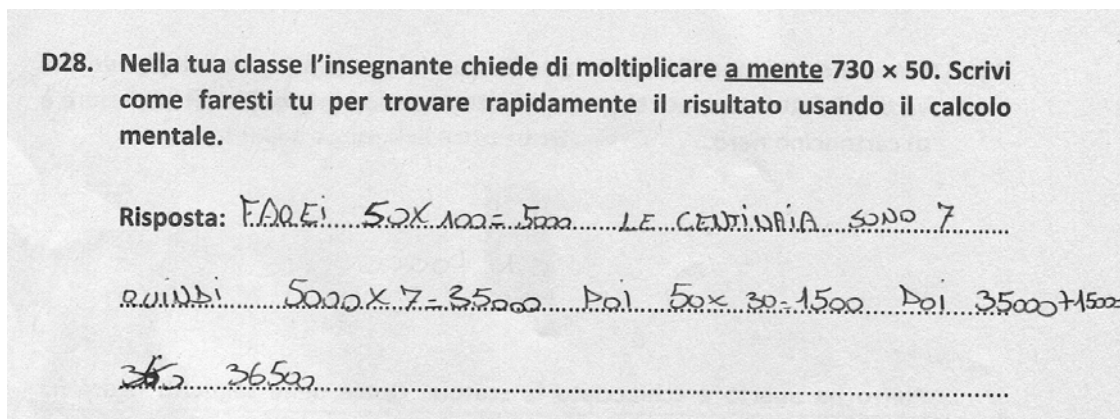 D28. Nella tua classe l'insegnante chiede di moltiplicare a mente 730 × 50. Scrivi
come faresti tu per trovare rapidamente il risultato usando il calcolo
mentale.
Risposta: FAREI 50X100=5000 LE CENTINAIA SONO 7
QUINDI 5000X7=35000 POI 50x30=1500 POI 35000+1500
36500